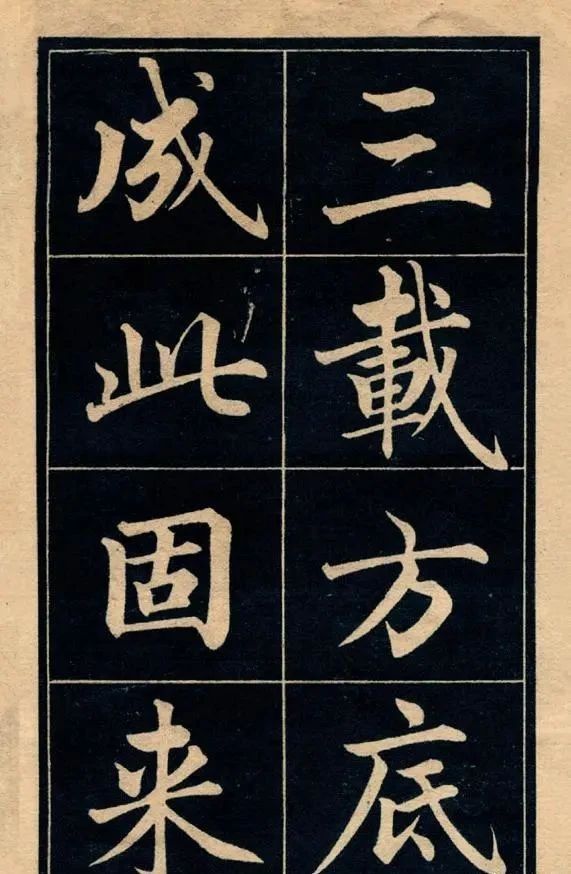 三載方底
成此固来